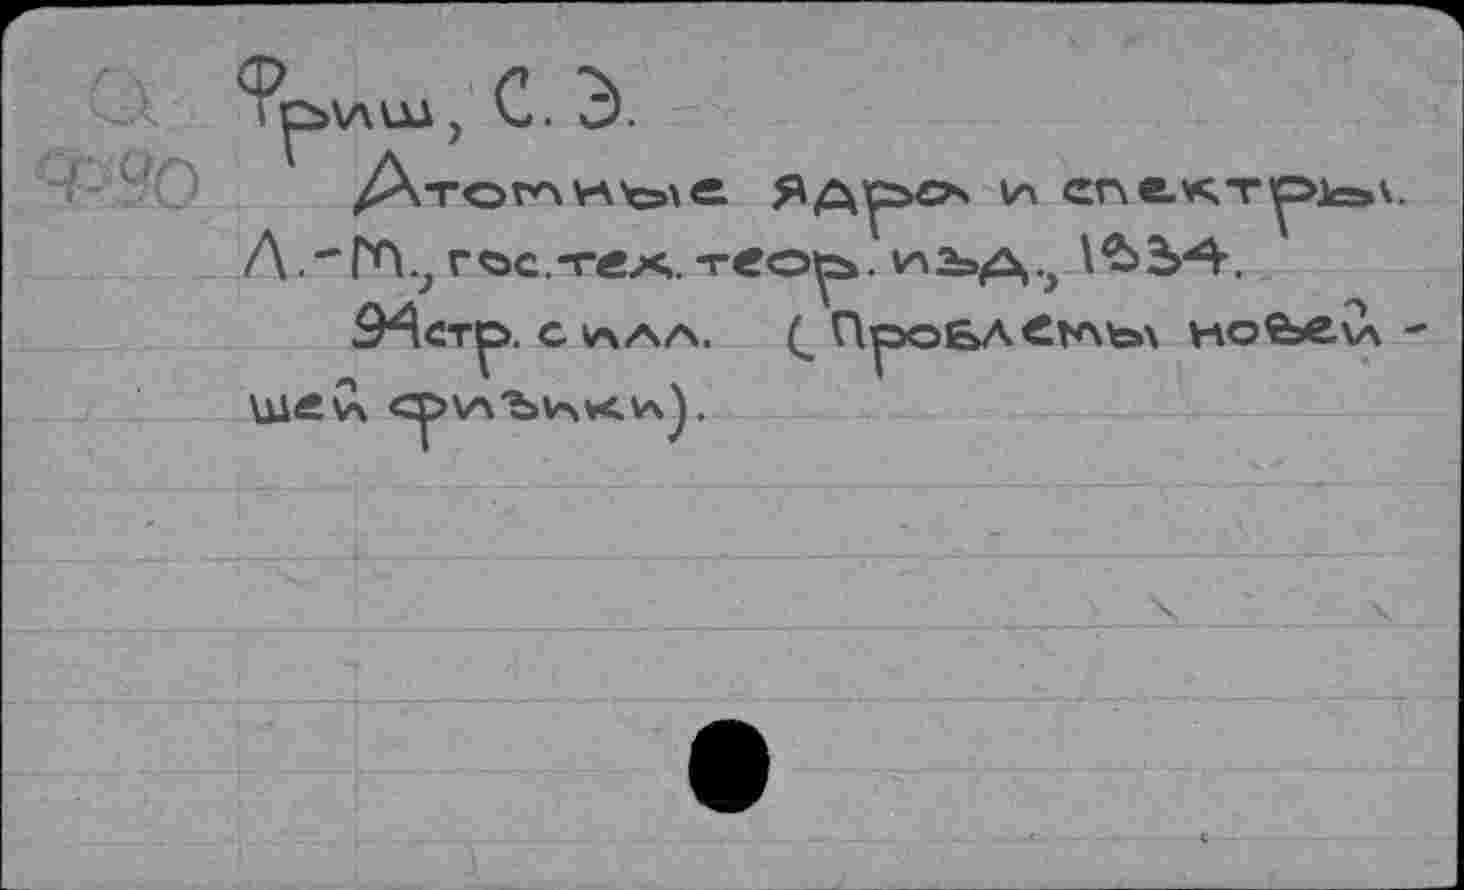 Фриш, С. Э.
Ф-90
Атомные ядра и спектры.
Л.-М., гос.тех.теор.изд., 1934.
94стр. с илл. (Проблемы новей-
шей физики).